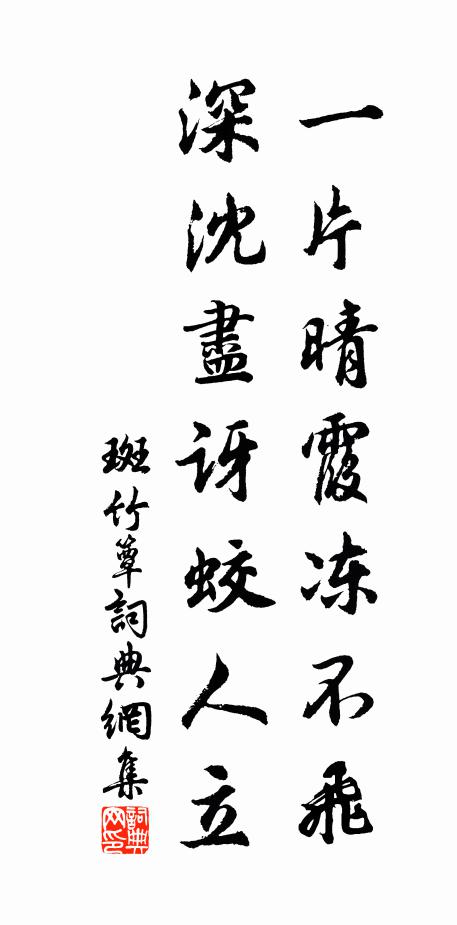 一片晴霞冻不飛
深沈盡訝蛟人立
斑竹簟詞典網集
詞典
网印